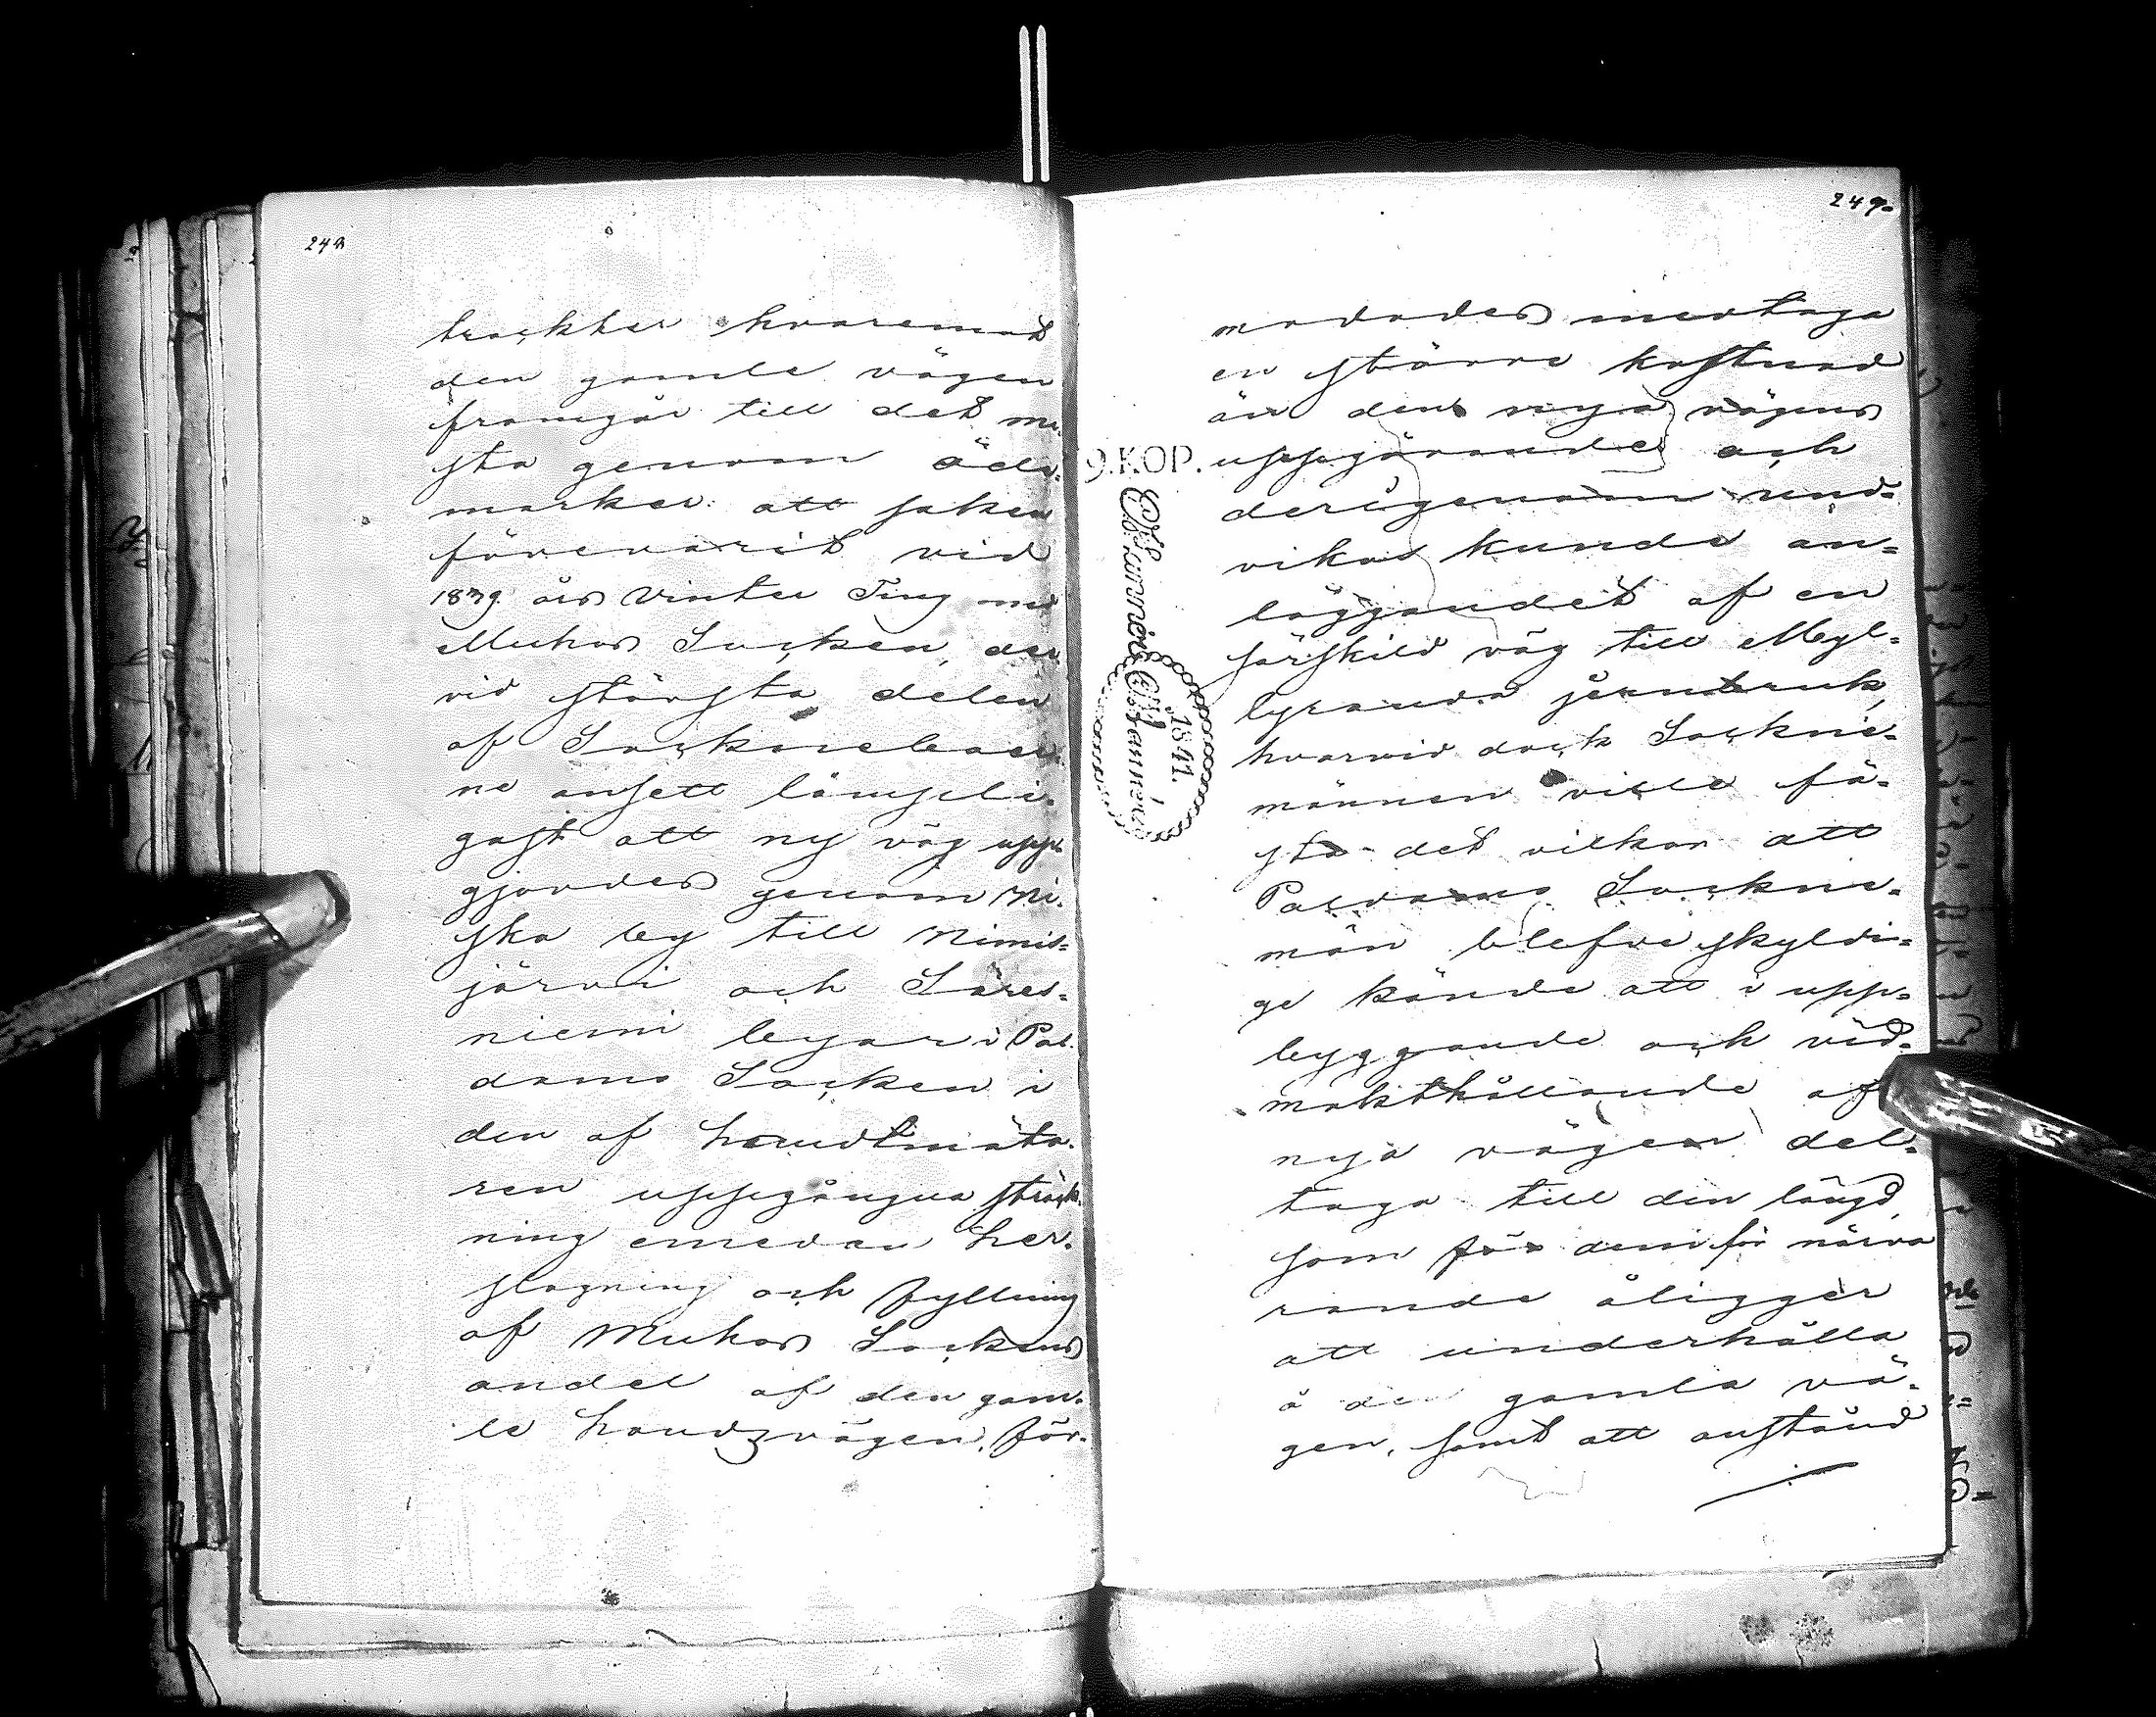 248
trackter hvaremot
den gamle vägen
framgår till det me¬
sta genom öde¬
marker: att saken
förevarit vid
1839 års Vinter Ting med
Muhos Socken, der
vid största delen
af Sockneboer¬
ne ansett lämpeli¬
gast att ny väg upp¬
gjordes genom Ni¬
ska by till Nimis¬
järvi och Säres¬
niemi byar i Pal¬
damo Socken i
den af Landtmäta¬
ren uppgångna sträck¬
ning emedan Ler¬
slagning och fyllning
af Muhos Sockens
andel af den gam¬
le Landzvägen, för¬
249.
modades medtaga
en större kostnad
än den nya vägens
uppgörande och
derigenom und¬
vikas kunde an¬
läggandet af en
särskild väg till Myl¬
lyranda jernbruk,
hvarvid dock Sockne¬
männen ville fä¬
sta det vilkor att
Paldamo Sockne¬
män blefve skyldi¬
ge kände att i upp¬
byggande och vid¬
makthållande af
nya vägen del¬
taga till den längd,
som för dem för närva
rande åligger
att underhålla
å den gamla vä¬
gen, samt att anstånd
9. KOP.
1841.